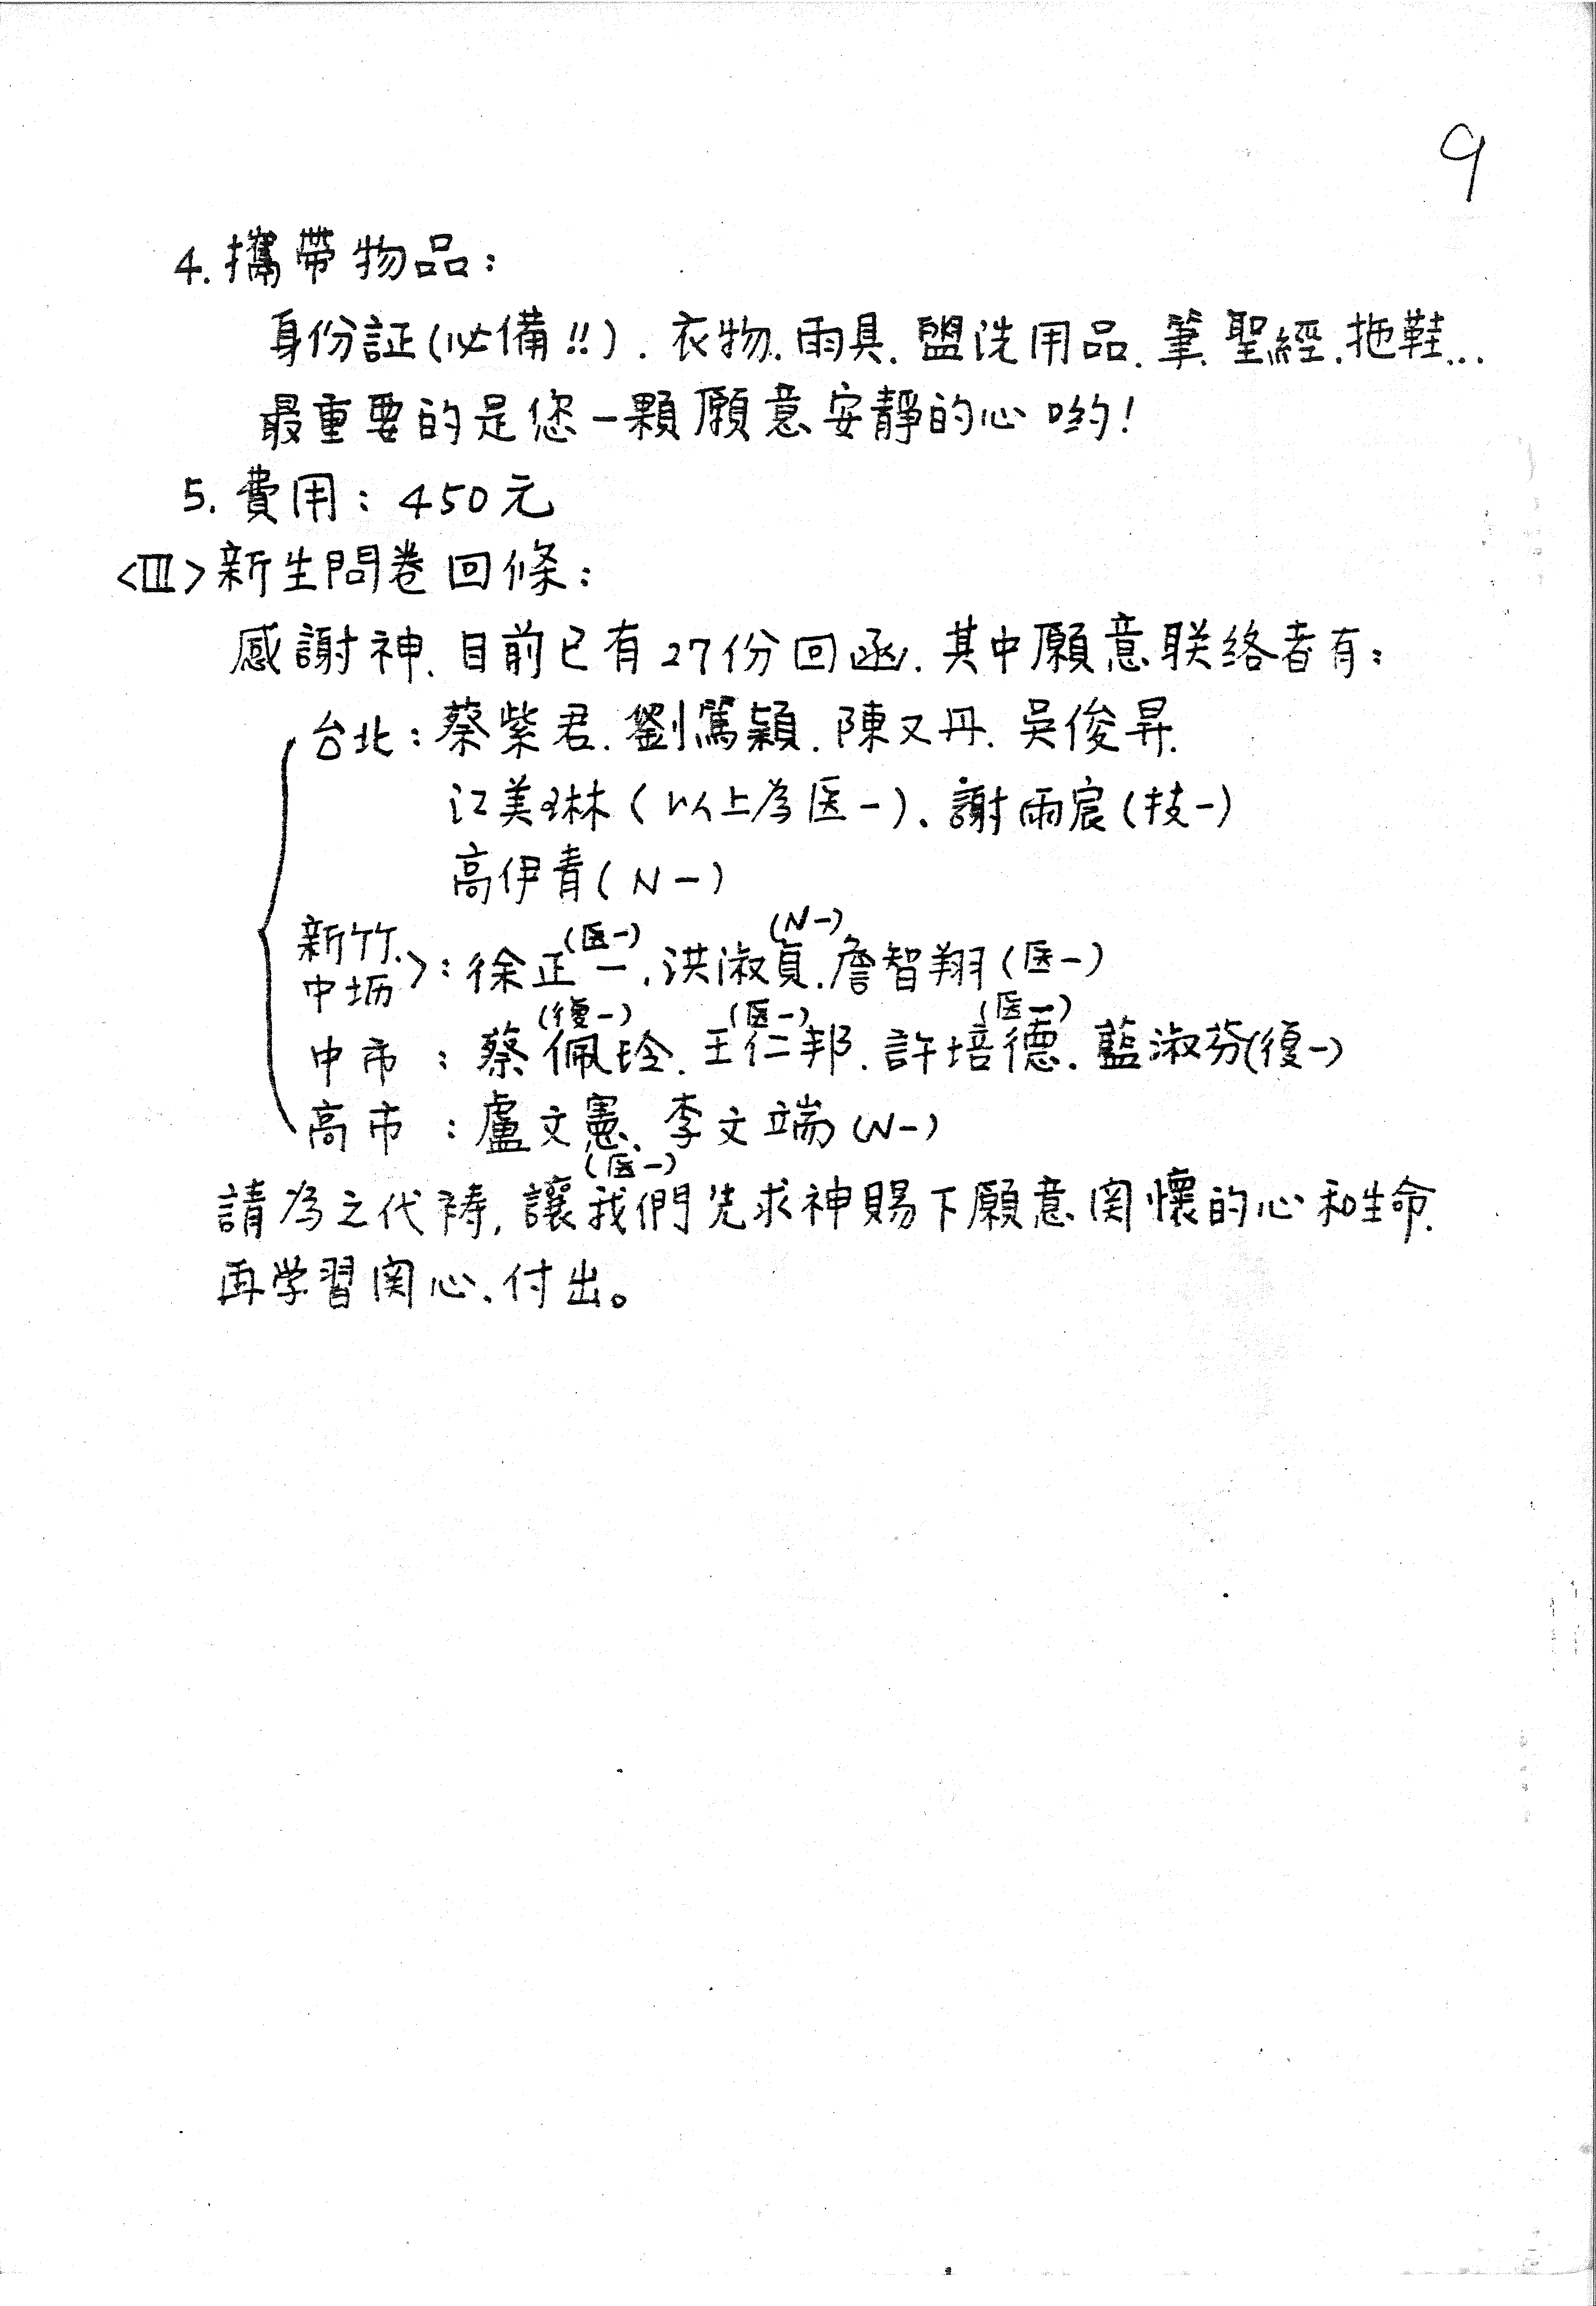 9
4. 攜帶物品：
身份証(必備!!). 衣物. 雨具. 盥洗用品. 筆. 聖經. 拖鞋...
最重要的是您一顆願意安靜的心喲!
5. 費用：450元
<III>新生問卷回條：
感謝神. 目前已有27份回函. 其中願意联络者有：
台北：蔡紫君. 劉篤穎. 陳又丹. 吳俊昇.
江美琳(以上為医一). 謝雨宸(技一)
高伊青(N一)
新竹. 中坜>：徐正一(医一). 洪淑貞(N一). 詹智翔(医一)
中市：蔡佩玲(復一). 王仁邦(医一). 許培德(医一). 藍淑芬(復一)
高市：盧文憲(医一). 李文端(N一)
請為之代祷, 讓我們先求神賜下願意関懷的心和生命.
再学習関心、付出。